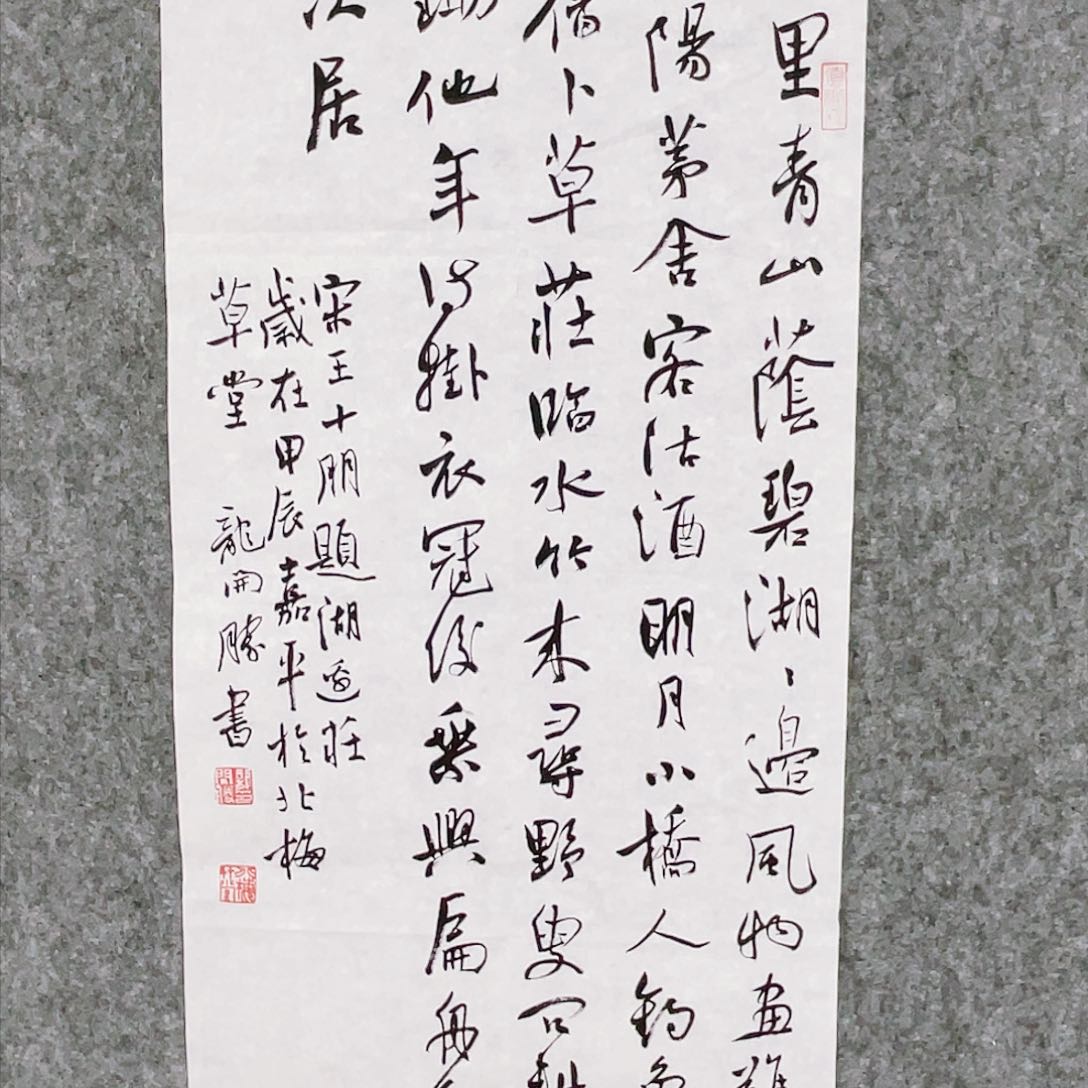 里青山蔭碧湖〻邊風物畫難
陽茅舍客沽酒明月小橋人釣魚
舊卜草莊臨水竹來尋野叟問耕
鋤他年得掛衣冠後乘興扁舟
居
宋王十朋題湖邊莊
歲在甲辰嘉平於北梅
草堂 龍開勝書